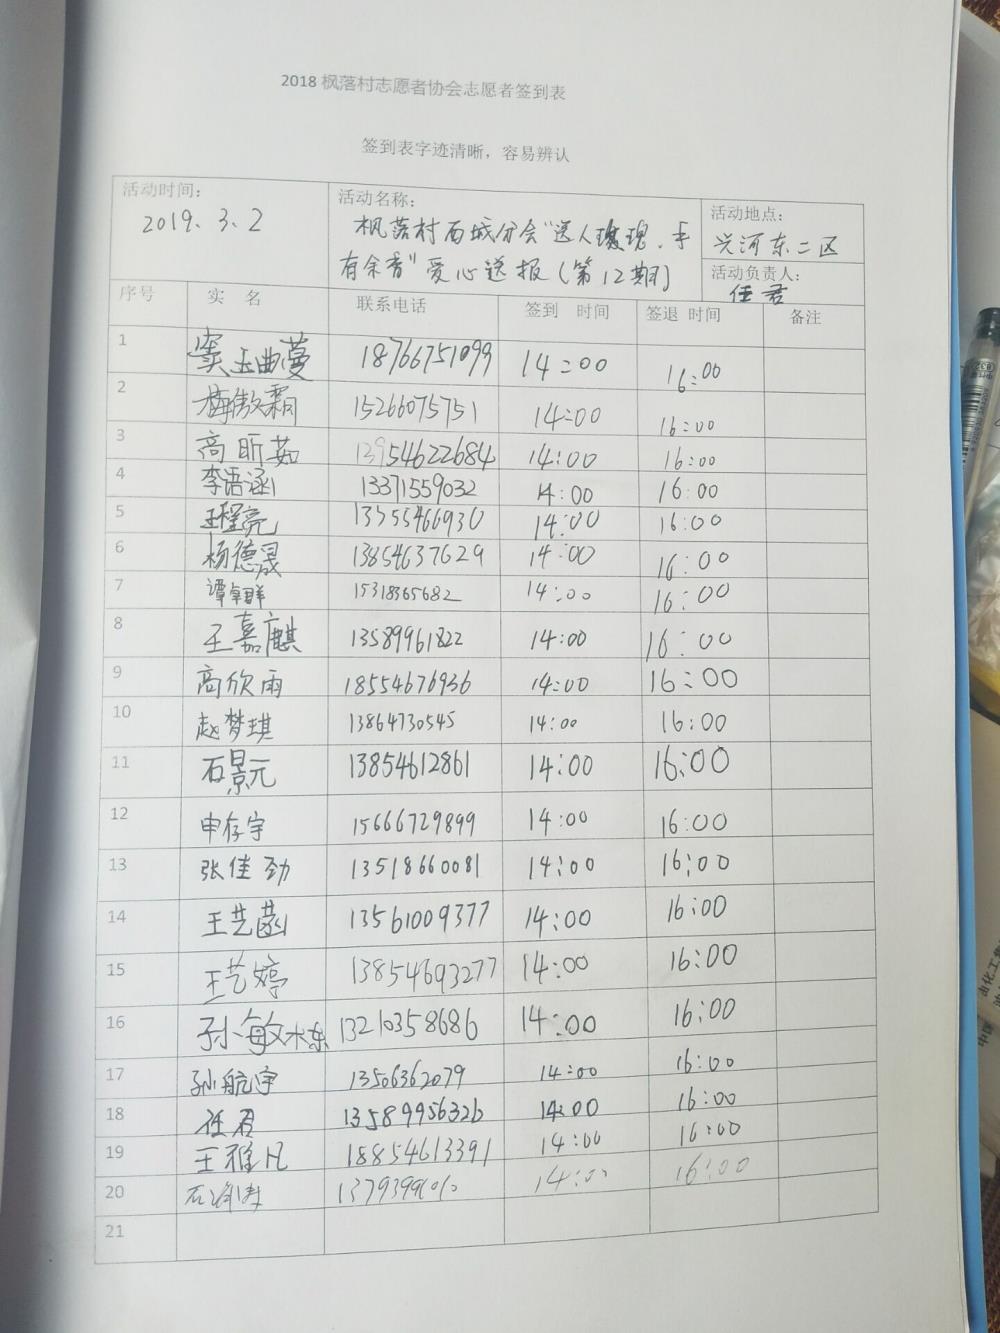 2018 枫落村志愿者协会志愿者签到表
签到表字迹清晰，容易辨认
活动时间：
2019.3.2
活动名称：
枫落村西城分会“送人玫瑰，手
有余香”爱心送报（第12期）
活动地点：
兴河东二区
活动负责人：
任君
序号 实 名 联系电话 签到 时间 签退 时间 备注
1 窦玉曲蔓 18766751099 14:00 16:00
2 梅傲霜 15266075751 14:00 16:00
3 高昕茹 13954622684 14:00 16:00
4 李语涵 13371559032 14:00 16:00
5 王程亮 13355466930 14:00 16:00
6 杨德晟 13854637629 14:00 16:00
7 谭卓群 15318365682 14:00 16:00
8 王嘉麒 13589961822 14:00 16:00
9 高欣雨 18554676936 14:00 16:00
10 赵梦琪 13864730545 14:00 16:00
11 石景元 13854612861 14:00 16:00
12 申存宇 15666729899 14:00 16:00
13 张佳劲 13518660081 14:00 16:00
14 王艺菡 13561009377 14:00 16:00
15 王艺婷 13854693277 14:00 16:00
16 孙敏栋 13210358686 14:00 16:00
17 孙航宇 13506362079 14:00 16:00
18 任君 13589956326 14:00 16:00
19 王雅凡 18854613391 14:00 16:00
20 14:00 16:00
21